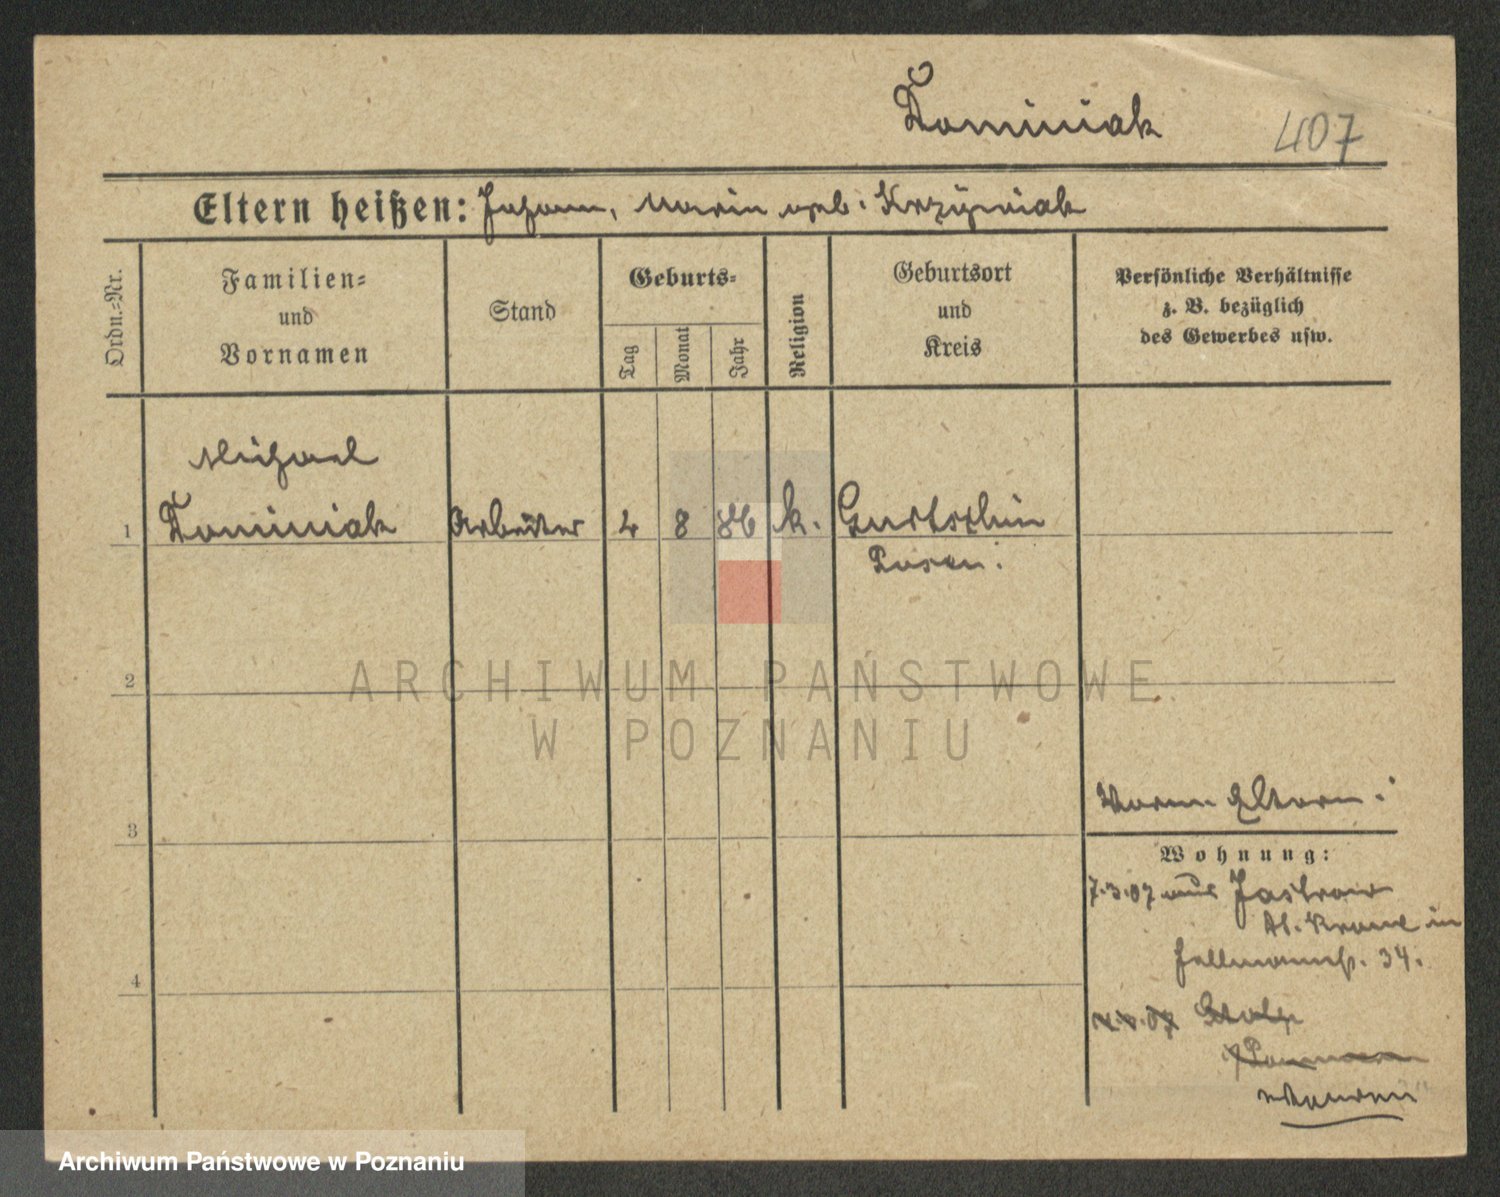 Dominiak
407
Eltern heißen: Johann, Maria geb. Krzyżniak
Ordn.-Nr.
Familien-
und
Vornamen
Stand
Geburts-
Tag
Monat
Jahr
Religion
Geburtsort
und
Kreis
Persönliche Verhältnisse
z. B. bezüglich
des Gewerbes usw.
Michael
1 Dominiak Arbeiter 4 8 86 k. Gurtschin
Posen.
2
3
4
Eltern.
Wohnung:
7.3.07 aus Jastrow
Dt. Krone in
34.
07 Stolp
Pommern
ARCHIWUM PAŃSTWOWE
W POZNANIU
Archiwum Państwowe w Poznaniu